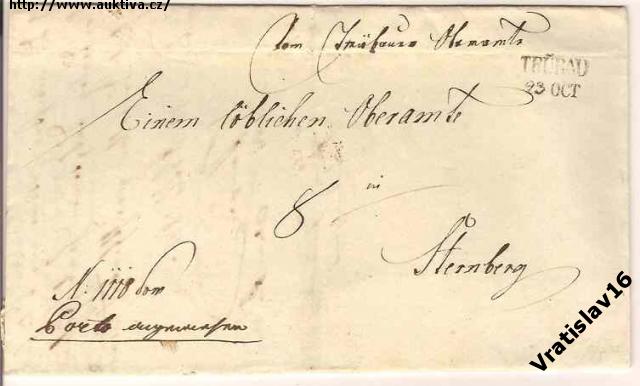 http://www.auktiva.cz/
Vom Trübauer Oberamte
TRÜBAU
23 OCT
Einem löblichen Oberamte
8 in
Sternberg
N: 1118 dom
Porto
Vratislav16